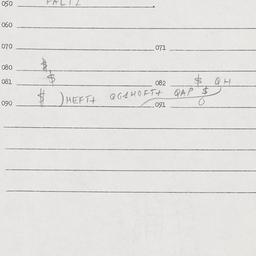 050 PALTZ
060
070 071
080 $
081 $ 082 $ QH
090 $ )HEFT+ QG1HOFT+ QAP $
091 0